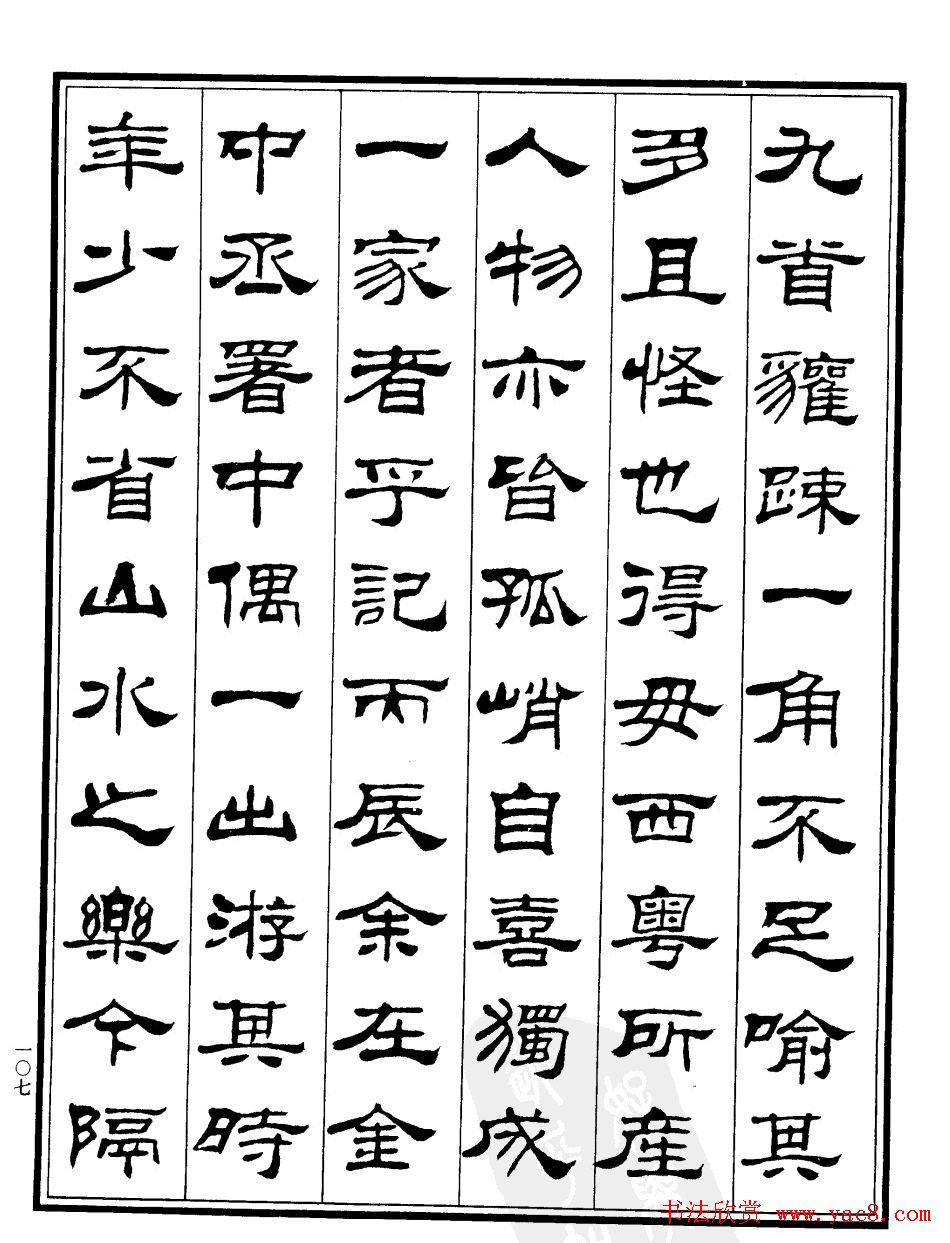 九首貛疎一角不足喻其
多且怪也得毋西粵所產
人物亦皆孤峭自喜獨成
一家者乎記丙辰余在金
中丞署中偶一出游其時
年少不省山水之樂今隔
一〇七
书法欣赏 www.yac8.com